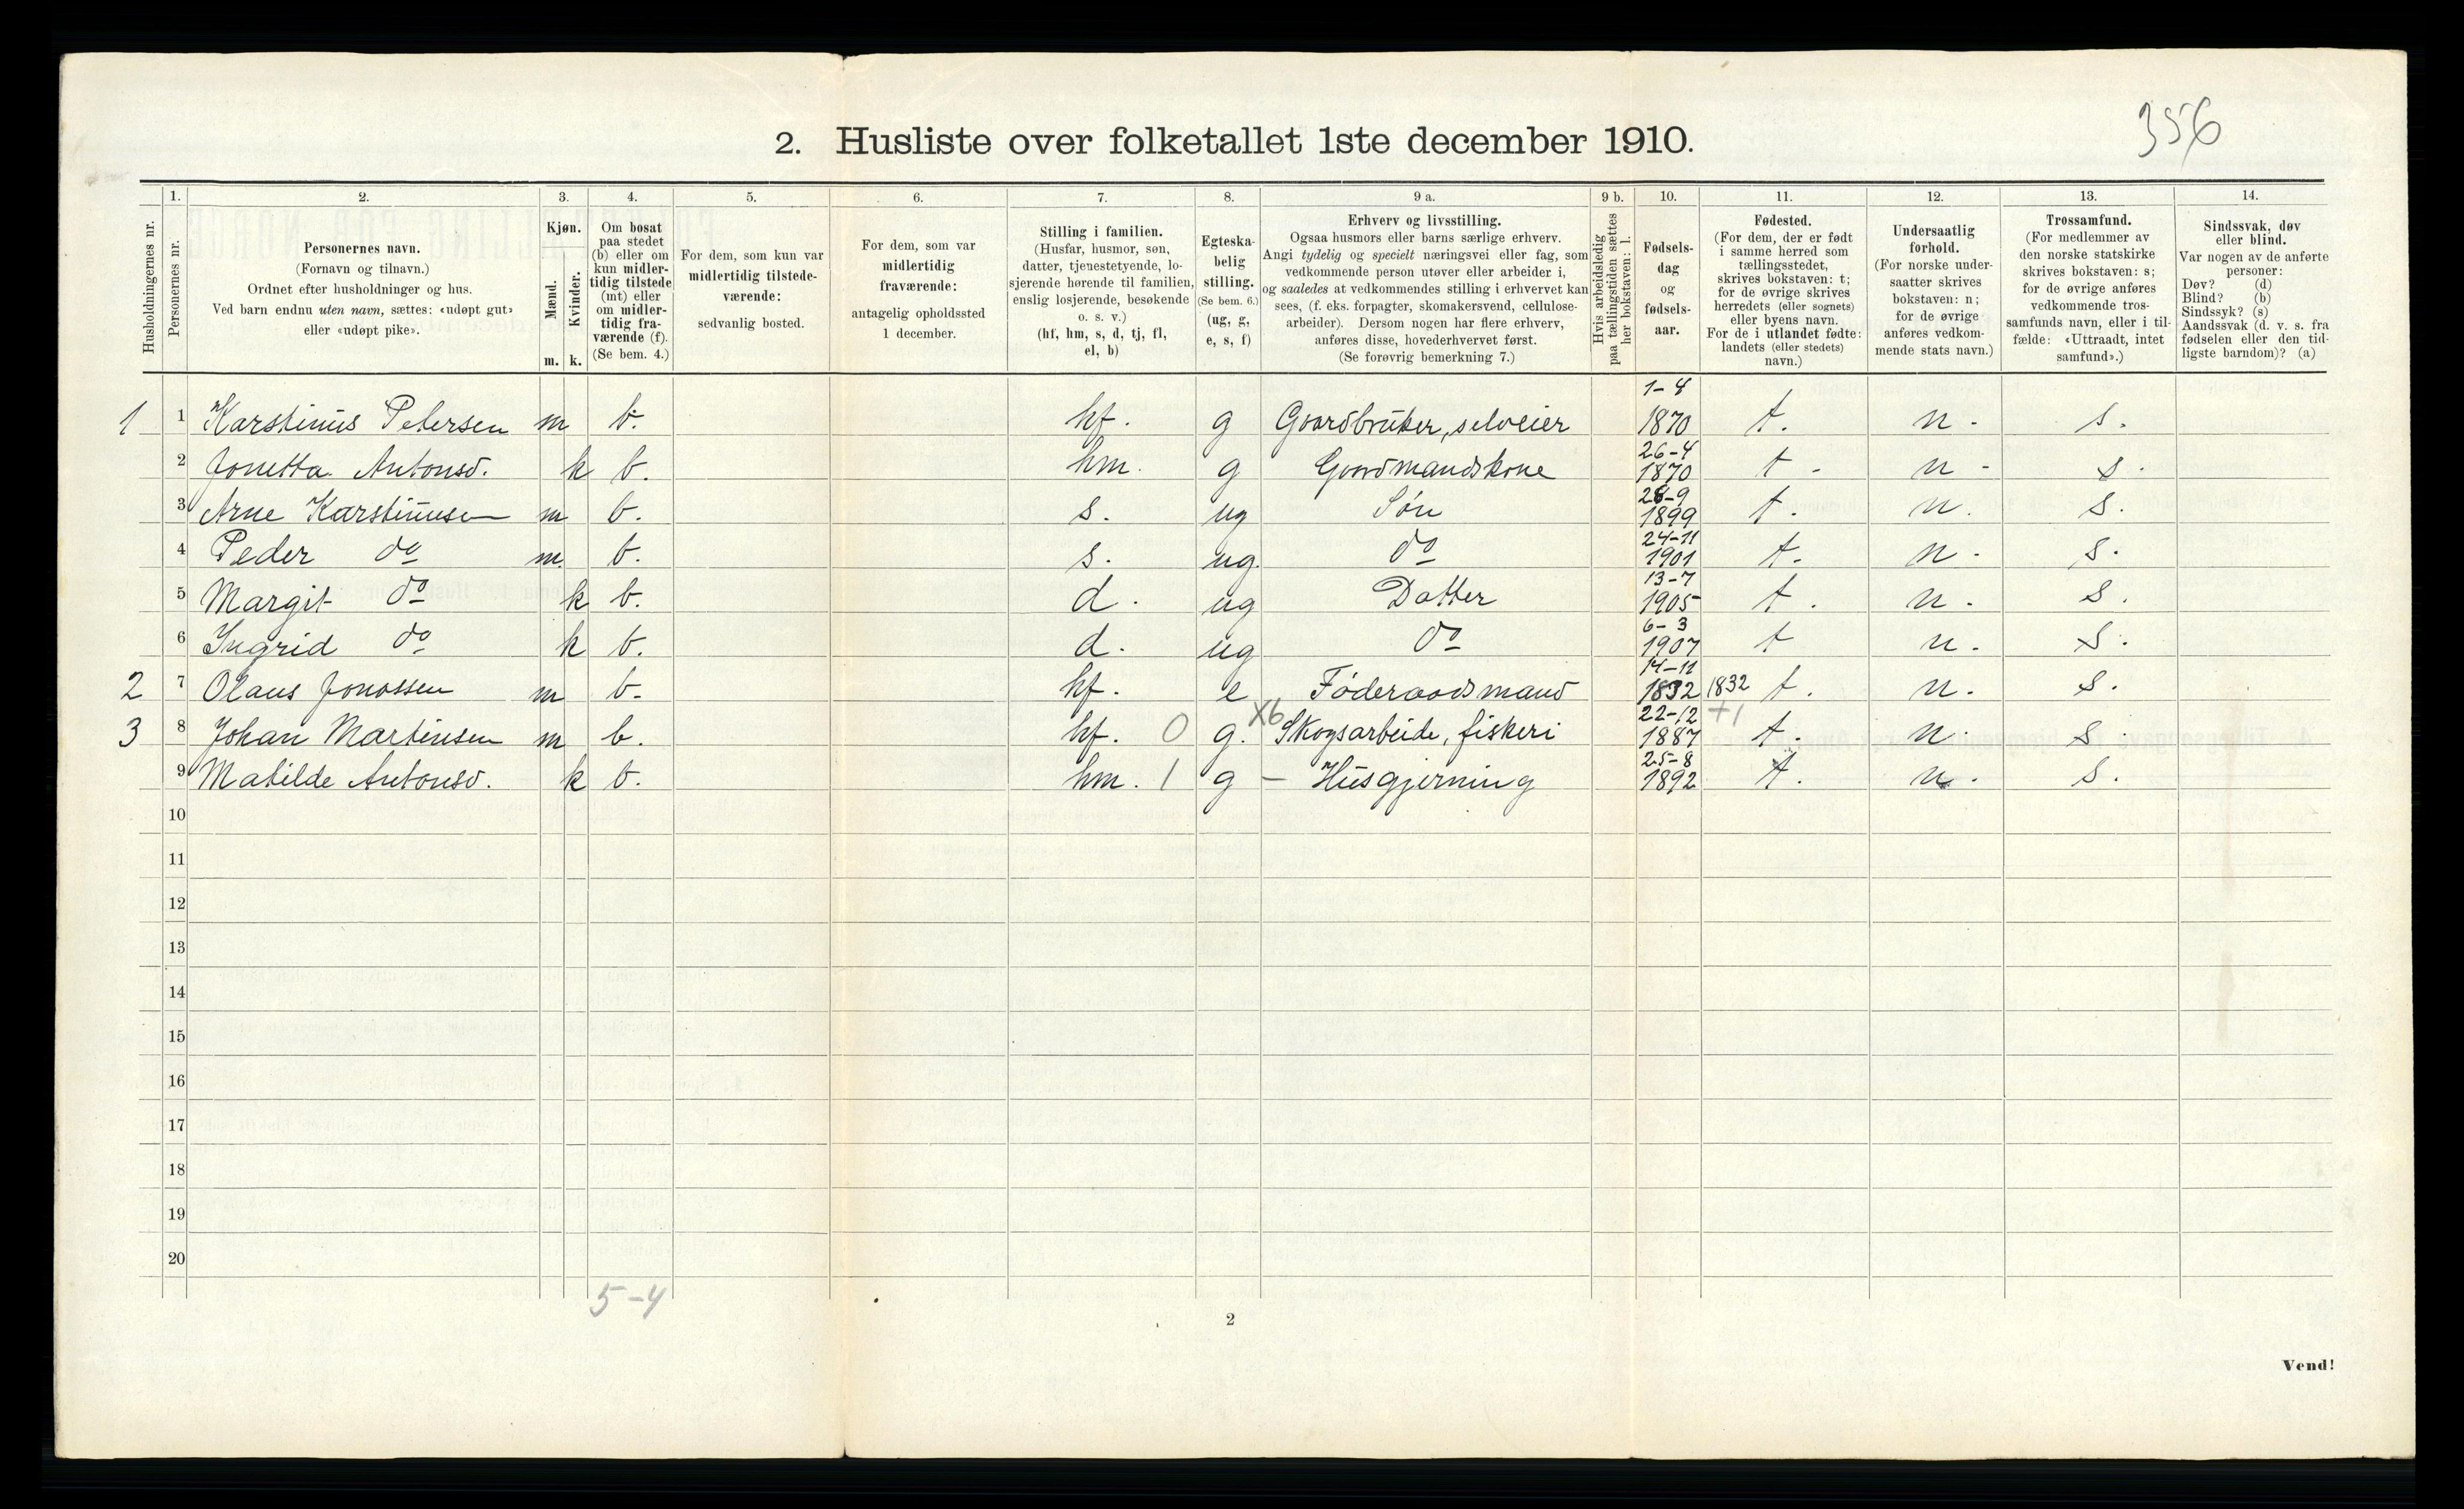 356
2. Husliste over folketallet 1ste december 1910.
Husholdningernes nr.
1.
Personernes nr.
2.
Personernes navn.
(Fornavn og tilnavn.)
Ordnet efter husholdninger og hus.
Ved barn endnu uten navn, sættes: «udøpt gut»
eller «udøpt pike».
3.
Kjøn.
Mænd.
Kvinder.
m. k.
4.
Om bosat
paa stedet
(b) eller om
kun midler-
tidig tilstede
(mt) eller
om midler-
tidig fra-
værende (f).
(Se bem. 4.)
5.
For dem, som kun var
midlertidig tilstede-
værende:
sedvanlig bosted.
6.
For dem, som var
midlertidig
fraværende:
antagelig opholdssted
1 december.
7.
Stilling i familien.
(Husfar, husmor, søn,
datter, tjenestetyende, lo-
sjerende hørende til familien,
enslig losjerende, besøkende
o. s. v.)
(hf, hm, s, d, tj, fl,
el, b)
8.
Egteska-
belig
stilling.
(Se bem. 6.)
(ug, g,
e, s, f)
9 a.
Erhverv og livsstilling.
Ogsaa husmors eller barns særlige erhverv.
Angi tydelig og specielt næringsvei eller fag, som
vedkommende person utøver eller arbeider i,
og saaledes at vedkommendes stilling i erhvervet kan
sees, (f. eks. forpagter, skomakersvend, cellulose-
arbeider). Dersom nogen har flere erhverv,
anføres disse, hovederhvervet først.
(Se forøvrig bemerkning 7.)
9 b.
Hvis arbeidsledig
paa tællingstiden sættes
her bokstaven: l.
10.
Fødsels-
dag
og
fødsels-
aar.
11.
Fødested.
(For dem, der er født
i samme herred som
tællingsstedet,
skrives bokstaven: t;
for de øvrige skrives
herredets (eller sognets)
eller byens navn.
For de i utlandet fødte:
landets (eller stedets)
navn.)
12.
Undersaatlig
forhold.
(For norske under-
saatter skrives
bokstaven: n;
for de øvrige
anføres vedkom-
mende stats navn.)
13.
Trossamfund.
(For medlemmer av
den norske statskirke
skrives bokstaven: s;
for de øvrige anføres
vedkommende tros-
samfunds navn, eller i til-
fælde: «Uttraadt, intet
samfund».)
14.
Sindssvak, døv
eller blind.
Var nogen av de anførte
personer:
Døv? (d)
Blind? (b)
Sindssyk? (s)
Aandssvak (d. v. s. fra
fødselen eller den tid-
ligste barndom)? (a)
1 1 Karstinus Petersen m b. hf. g Gaardbruker, selveier 1-4 1870 t. n. s.
2 Jonetta Antonsd. k b. hm. g Gaardmandskone 26-4 1870 t. n. s.
3 Arne Karstinusen m b. s. ug Søn 28-9 1899 t. n. s.
4 Peder do m. b. s. ug. do 24-11 1901 t. n. s.
5 Margit do k b. d. ug Datter 13-7 1905 t. n. s.
6 Ingrid do k b. d. ug do 6-3 1907 t n. s.
2 7 Olaus Jonassen m b. hf. e Føderaadsmand 14-11 1832 1832 t. n. s.
3 8 Johan Martinsen m b. hf. 0 g. X6 Skogsarbeide, fiskeri 22-12 1887 +1 t. n. s
9 Matilde Antonsd. k b. hm. 1 g - Husgjerning 25-8 1892 t. n. s.
10
11
12
13
14
15
16
17
18
19
20
5-4
2
Vend!